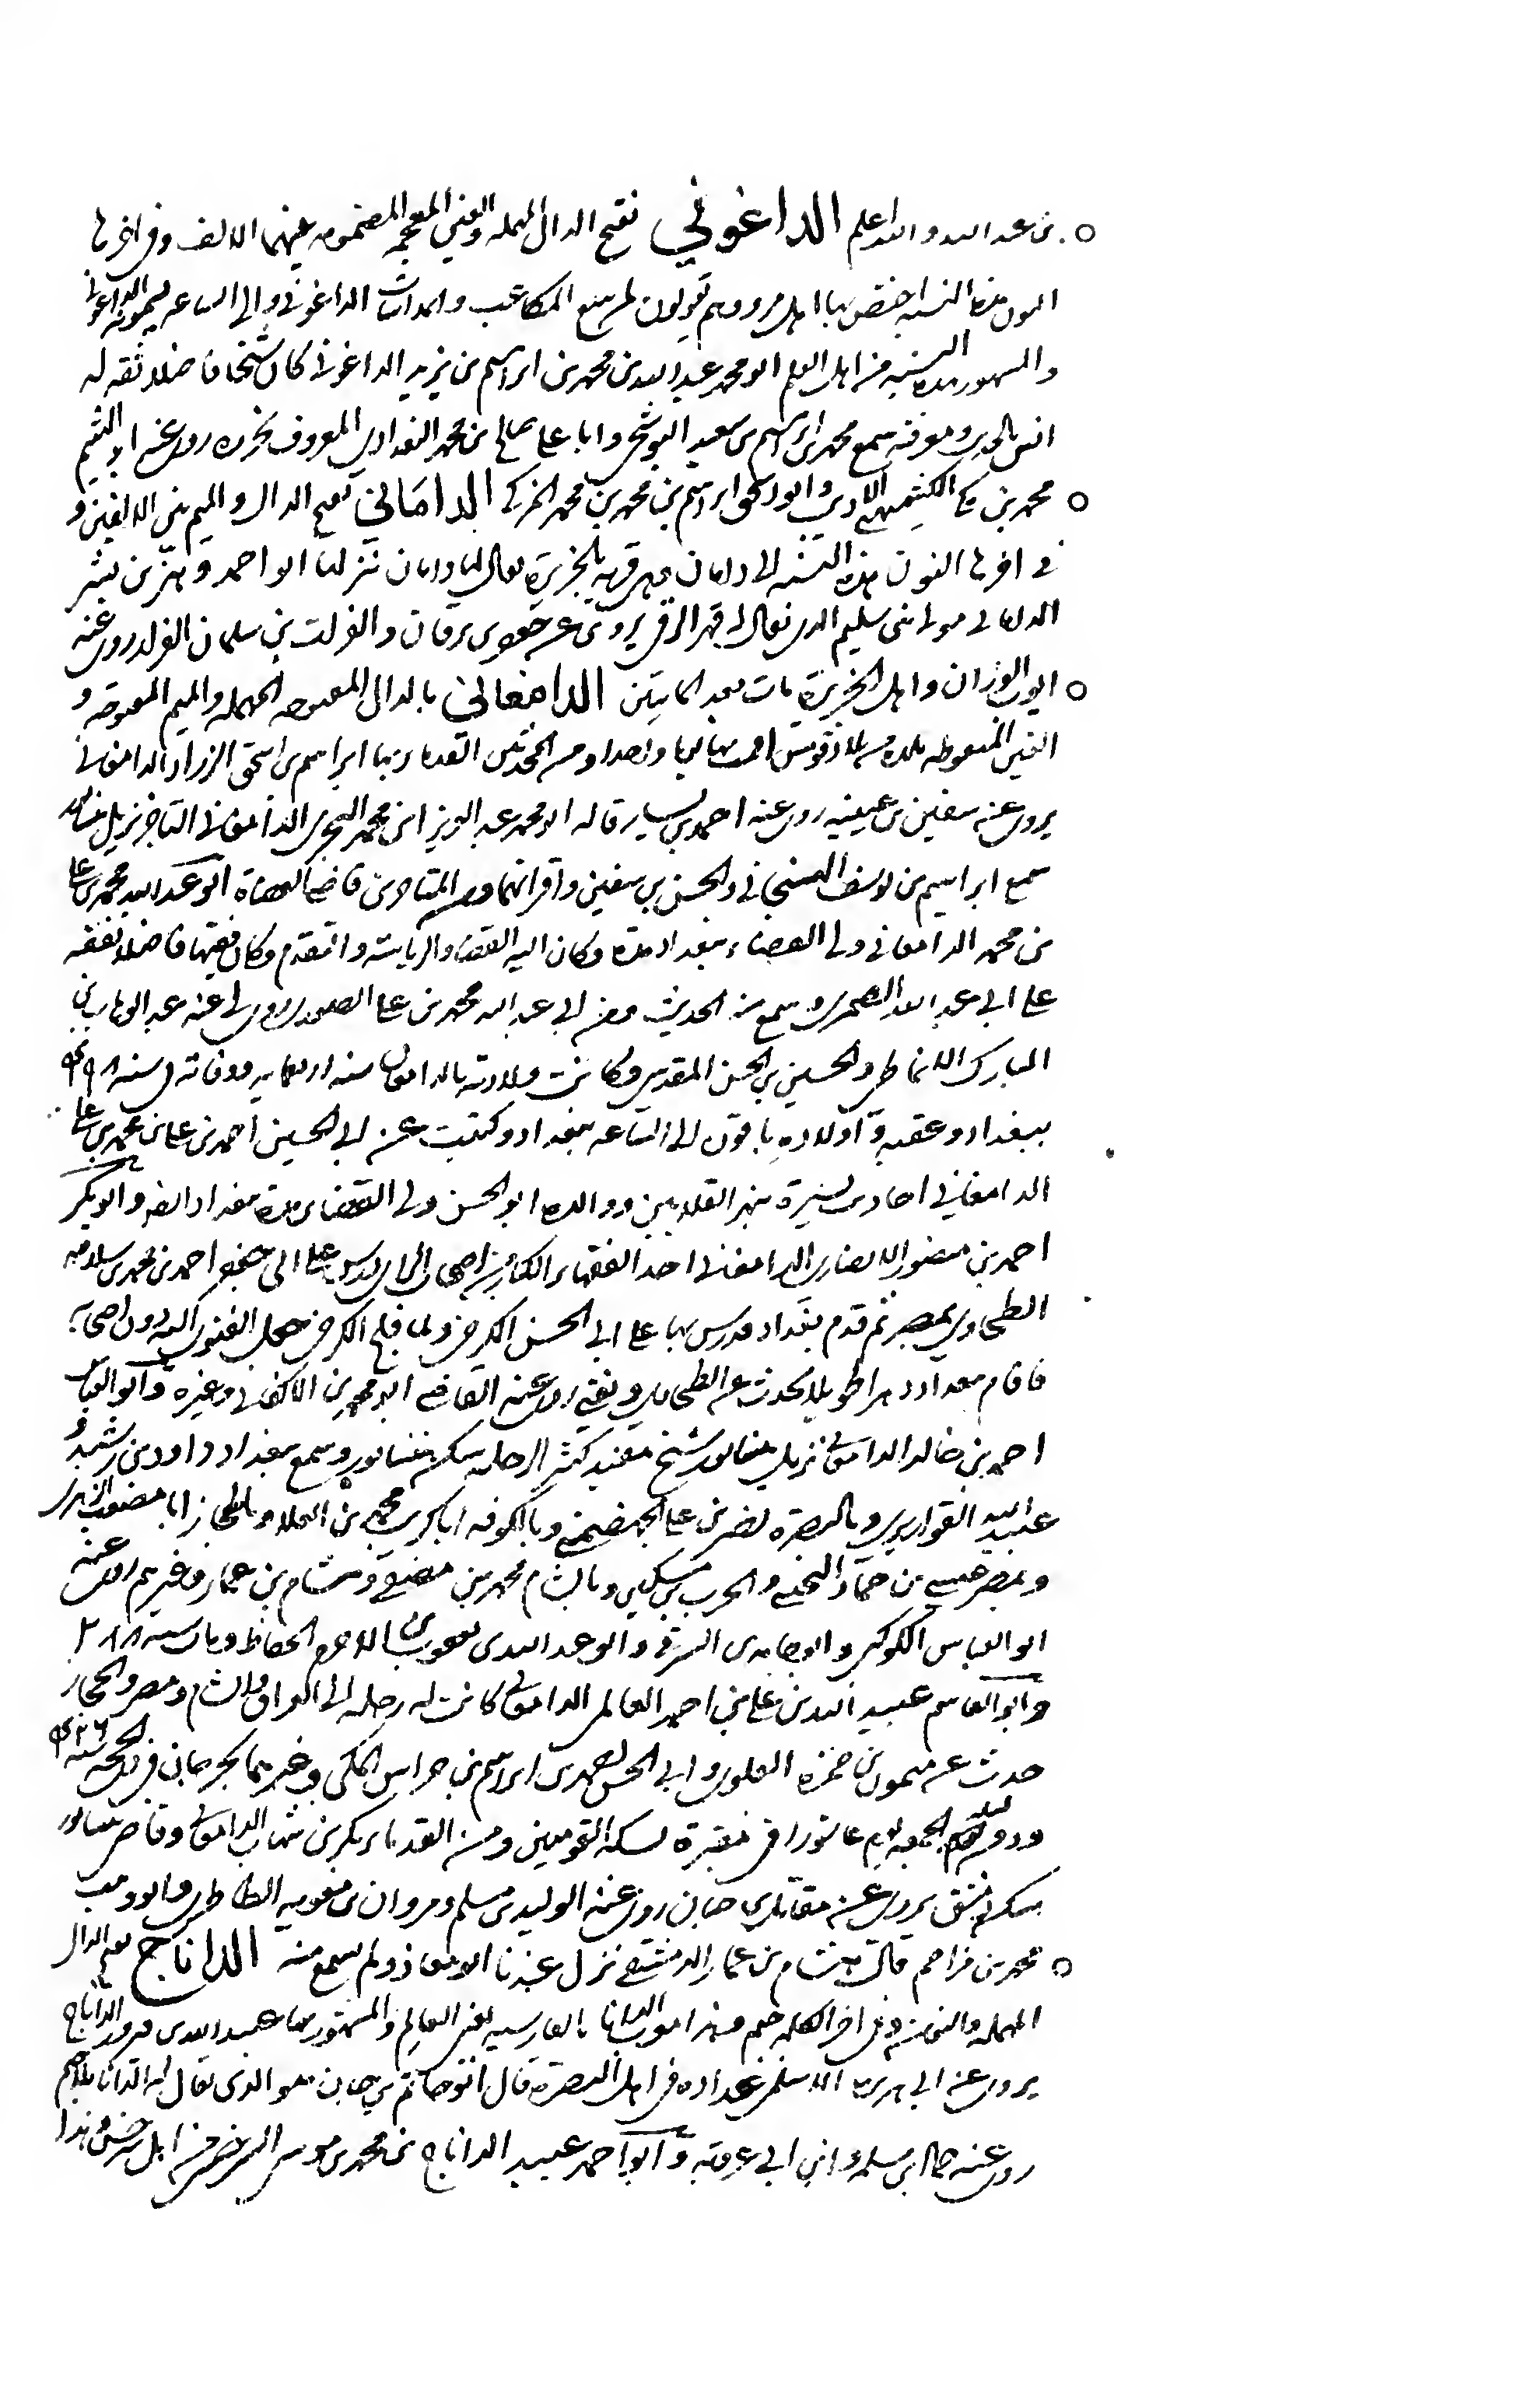 بن عبد الله والله اعلم الداغوني بفتح الدال المهملة والغين المعجمة المضمومة بينهما الالف وفى اخرها
النون هذه النسبة اختص بها اهل مرو وهم يقولون لمن يبيع المكاعب والمداسات الداغوني والى الساعة يسمونه الداغوني
والمشهور بهذه النسبة من اهل العلم ابو محمد عبد الله بن محمد بن ابراهيم بن يزيد الداغوني كان شيخا فاضلا ثقه له
انس بالحديث ومعرفته سمع محمد بن ابراهيم بن سعيد البوشنجي وابا علي صالح بن محمد البغدادي المعروف بجزره روى عنه ابو الهيثم
محمد بن مكي الكشميهني الاديب وابو اسحق ابراهيم بن محمد بن محمد المزكى الداماني بفتح الدال والميم بين الالفين و
في اخرها النون هذه النسبة الى دامان وهى قرية بالجزيرة يقال لها دامان نزلها ابو احمد فهر بن بشر
الداماني مولى بنى سليم الذى يقال له فهر الرقي يروى عن جعفر بن برقان والفرات بن سلمان القزاز روى عنه
ايوب الوزان واهل الجزيرة مات بعد المايتين الدامغاني بالدال المفتوحه المهمله والميم المفتوحة و
الغين المنقوطه بلده من بلاد قومس اقمت بها ليالى واصلها ومن المحدثين القدماء بها ابراهيم بن اسحق الزراد الدامغاني
يروى عنه سفين بن عيينه روى عنه احمد بن سيار قاله ابو محمد عبد العزيز ابن محمد النخشبى الدامغاني التاجر نزيل نيسابور
سمع ابراهيم بن يوسف الهسنجاني والحسن بن سفين واقرانهما ومن المتاخرين قاضي القضاة ابو عبد الله محمد بن علي
بن محمد الدامغاني ولى القضاء ببغداد مدة وكان اليه القضاء والرياسة والتقدم وكان فقيها فاضلا تفقه
على ابي عبد الله الصيمري وسمع منه الحديث ومن ابي عبد الله محمد بن علي الصوري روى لي عنه عبد الوهاب بن
المبارك الانماطي والحسين بن الحسن المقدسي وكانت ولادته بالدامغان سنه اربعمايه ووفاته في سنه ٤٩٨
ببغداد وعقبه واولاده باقون الى الساعه ببغداد وكتبت عن ابي الحسين احمد بن علي بن محمد بن علي
الدامغاني احاديث يسيرة بنهر القلايين ووالده ابو الحسن ولى القضاء مدة ببغداد ايضا وابو بكر
احمد بن منصور الانصاري الدامغاني احد الفقهاء الكبار من اصحاب الراى درس على ابى جعفر احمد بن محمد بن سلامه
الطحاوي بمصر ثم قدم بغداد ودرس بها على ابي الحسن الكرخى ولما فلج الكرخى جعل الفتوى اليه دون اصحابه
فاقام ببغداد دهرا طويلا يحدث عن الطحاوي ويفتى روى عنه القاضي ابو محمد بن الاكفاني وغيره وابو العباس
احمد بن خالد الدامغاني نزيل نيسابور شيخ مفيد كثير الرحله سكن نيسابور وسمع ببغداد داود بن رشيد و
عبيد الله القواريري وبالبصرة نصر بن علي الجهضمي وبالكوفه ابا كريب محمد بن العلاء وبالحجاز ابا مصعب الزهري
وبمصر عيسى بن حماد التجيبي والحرث بن مسكين وبالشام محمد بن مصفى وهشام بن عمار وغيرهم روى عنه
ابو العباس الكوكبي وابو حامد بن الشرقي وابو عبد الله بن يعقوب بن الاخرم الحفاظ ومات سنه ٢٨٨
وابو القاسم عبيد الله بن علي بن احمد العالمى الدامغاني كانت له رحله الى العراق والشام ومصر والحجاز
حدث عن ميمون بن حمزه العلوي وابي الحسن احمد بن ابراهيم بن فراس المكي وغيرهما بجرجان في ذى الحجه سنه ٤٢٦
ودفن ليلة الجمعه يوم عاشورا في مقبرة لسكة القومسين ومن القدماء بكر بن شهاب الدامغاني وقاضى نيسابور
سكن دمشق يروى عن مقاتل بن حيان روى عنه الوليد بن مسلم ومروان بن معويه الطاطري وابو وهب
محمد بن مزاحم قال هشام بن عمار الدمشقي نزل عندنا ابو معاذ ولم نسمع منه الداناج بفتح الدال
المهملة والنون وفى اخر الكلمه جيم هذه اللفظة الدانا بالفارسيه يعنى العالم والمشهور بها عبد الله بن فيروز الداناج
يروى عن ابي برزه الاسلمي عداده في اهل البصرة قال ابو حاتم بن حبان هو الذى يقال له الدانا بلا جيم
روى عنه حماد بن سلمه وابن ابي عروبة وابو احمد عبيد الداناج بن محمد بن موسى السرخسى من اهل سرخس وهذا